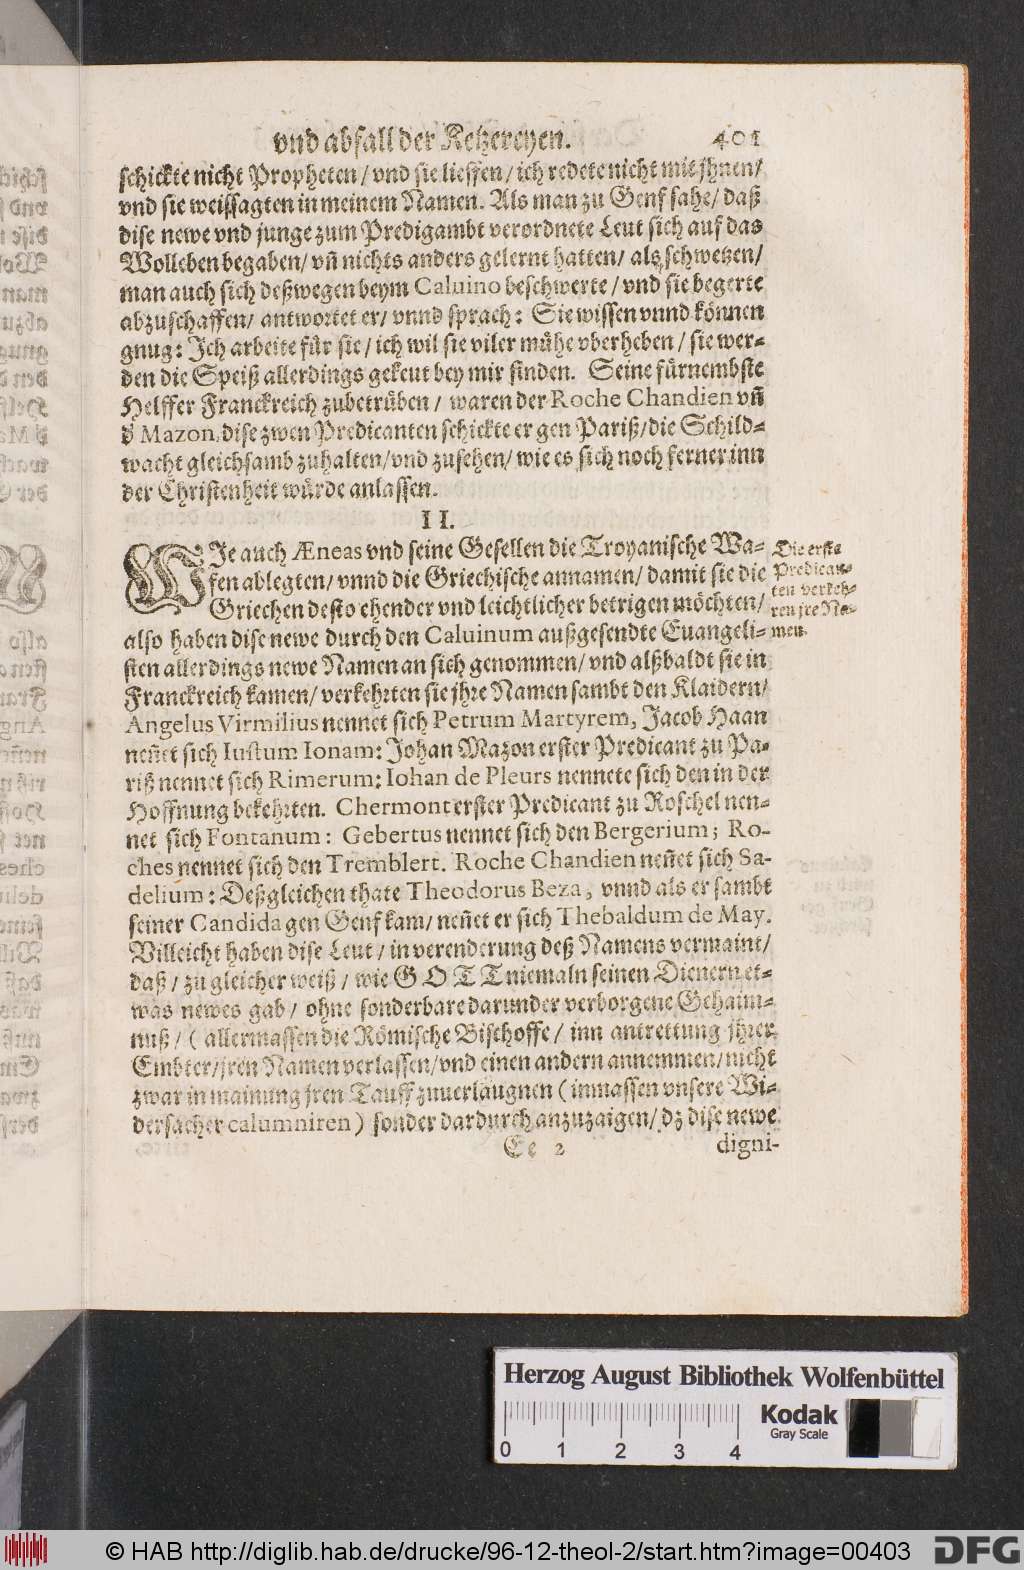 vnd abfall der Ketzereyen. 401
schickte nicht Propheten / vnd sie lieffen / ich redete nicht mit jhnen /
vnd sie weissagten in meinem Namen. Als man zu Genf sahe / daß
dise newe vnd junge zum Predigambt verordnete Leut sich auf das
Wolleben begaben / vñ nichts anders gelernt hatten / als schwetzen /
man auch sich deßwegen beym Caluino beschwerte / vnd sie begerte
abzuschaffen / antwortet er / vnnd sprach: Sie wissen vnnd können
gnug: Ich arbeite für sie / ich wil sie viler mühe vberheben / sie wer-
den die Speiß allerdings gekeut bey mir finden. Seine fürnembste
Helffer Franckreich zubetrüben / waren der Roche Chandien vñ
d' Mazon, dise zwen Predicanten schickte er gen Pariß / die Schild-
wacht gleichsamb zuhalten / vnd zusehen / wie es sich noch ferner inn
der Christenheit würde anlassen.
II.
WIe auch Æneas vnd seine Gesellen die Troyanische Wa-
fen ablegten / vnnd die Griechische annamen / damit sie die
Griechen desto ehender vnd leichtlicher betrigen möchten /
also haben dise newe durch den Caluinum außgesendte Euangeli-
sten allerdings newe Namen an sich genommen / vnd alßbaldt sie in
Franckreich kamen / verkehrten sie jhre Namen sambt den Klaidern /
Angelus Virmilius nennet sich Petrum Martyrem, Jacob Haan
neñet sich Iustum Ionam: Johan Mazon erster Predicant zu Pa-
riß nennet sich Rimerum: Iohan de Pleurs nennete sich den in der
Hoffnung bekehrten. Chermont erster Predicant zu Roschel nen-
net sich Fontanum: Gebertus nennet sich den Bergerium; Ro-
ches nennet sich den Tremblert. Roche Chandien neñet sich Sa-
delium: Deßgleichen thate Theodorus Beza, vnnd als er sambt
seiner Candida gen Genf kam / neñet er sich Thebaldum de May.
Villeicht haben dise Leut / in verenderung deß Namens vermaint /
daß / zu gleicher weiß / wie GOTT niemaln seinen Dienern et-
was newes gab / ohne sonderbare darunder verborgene Gehaim-
nuß / (allermassen die Römische Bischoffe / inn antrettung jhrer
Embter / jren Namen verlassen / vnd einen andern annemmen / nicht
zwar in mainung jren Tauff zuuerlaugnen (inmassen vnsere Wi-
dersacher calumniren) sonder dardurch anzuzaigen / dz dise newe
Ee 2 digni-
Die erste
Predican-
ten verkeh-
ren jre Na-
men.
Herzog August Bibliothek Wolfenbüttel
0 1 2 3 4
Kodak
Gray Scale
© HAB http://diglib.hab.de/drucke/96-12-theol-2/start.htm?image=00403
DFG